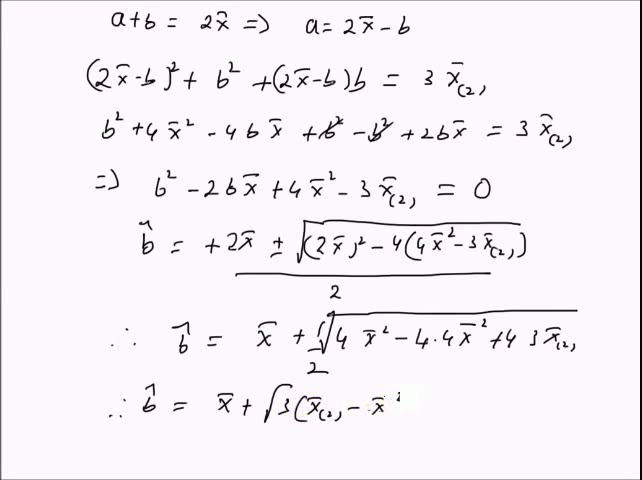 a+b = 2x̄ => a = 2x̄ - b
(2x̄-b)² + b² + (2x̄-b)b = 3 x̄(2)
b² + 4x̄² - 4bx̄ + b² - b² + 2bx̄ = 3 x̄(2)
=> b² - 2bx̄ + 4x̄² - 3x̄(2) = 0
b̂ = +2x̄ ± √(2x̄)² - 4(4x̄² - 3x̄(2))
2
∴ b̂ = x̄ + 1/2 √4x̄² - 4.4x̄² + 4 3x̄(2)
∴ b̂ = x̄ + √3(x̄(2) - x̄²